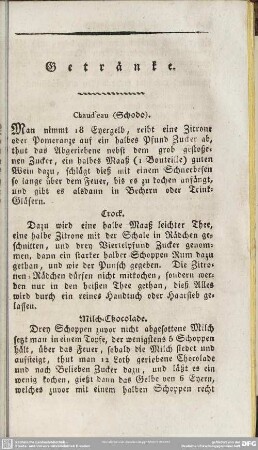 Getränke.
Chaud'eau (Schodo).
Man nimmt 18 Eyergelb, reibt eine Zitrone
oder Pomeranze auf ein halbes Pfund Zucker ab,
thut das Abgeriebene nebst dem grob gestoße-
nen Zucker, ein halbes Maaß (1 Bouteille) guten
Wein dazu, schlägt dieß mit einem Schneebesen
so lange über dem Feuer, bis es zu kochen anfängt,
und gibt es alsdann in Bechern oder Trink-
Gläsern.
Crock.
Dazu wird eine halbe Maaß leichter Thee,
eine halbe Zitrone mit der Schale in Rädchen ge-
schnitten, und drey Viertelpfund Zucker genom-
men, dann ein starker halber Schoppen Rum dazu
gethan, und wie der Punsch gegeben. Die Zitro-
nen-Rädchen dürfen nicht mitkochen, sondern wer-
den nur in den heißen Thee gethan, dieß Alles
wird durch ein reines Handtuch oder Haarsieb ge-
lassen.
Milch-Chocolade.
Drey Schoppen zuvor nicht abgesottene Milch
setzt man in einem Topfe, der wenigstens 6 Schoppen
hält, über das Feuer, sobald die Milch siedet und
aufsteigt, thut man 12 Loth geriebene Chocolade
und nach Belieben Zucker dazu, und läßt es ein
wenig kochen, gießt dann das Gelbe von 6 Eyern,
welches zuvor mit einem halben Schoppen recht